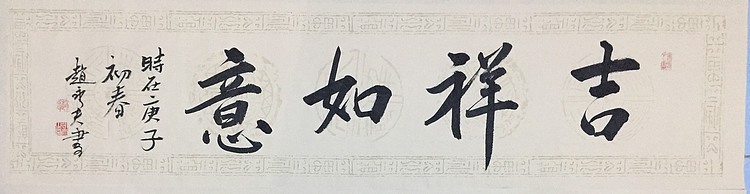 吉祥如意
時在庚子
初春
趙秀夫書